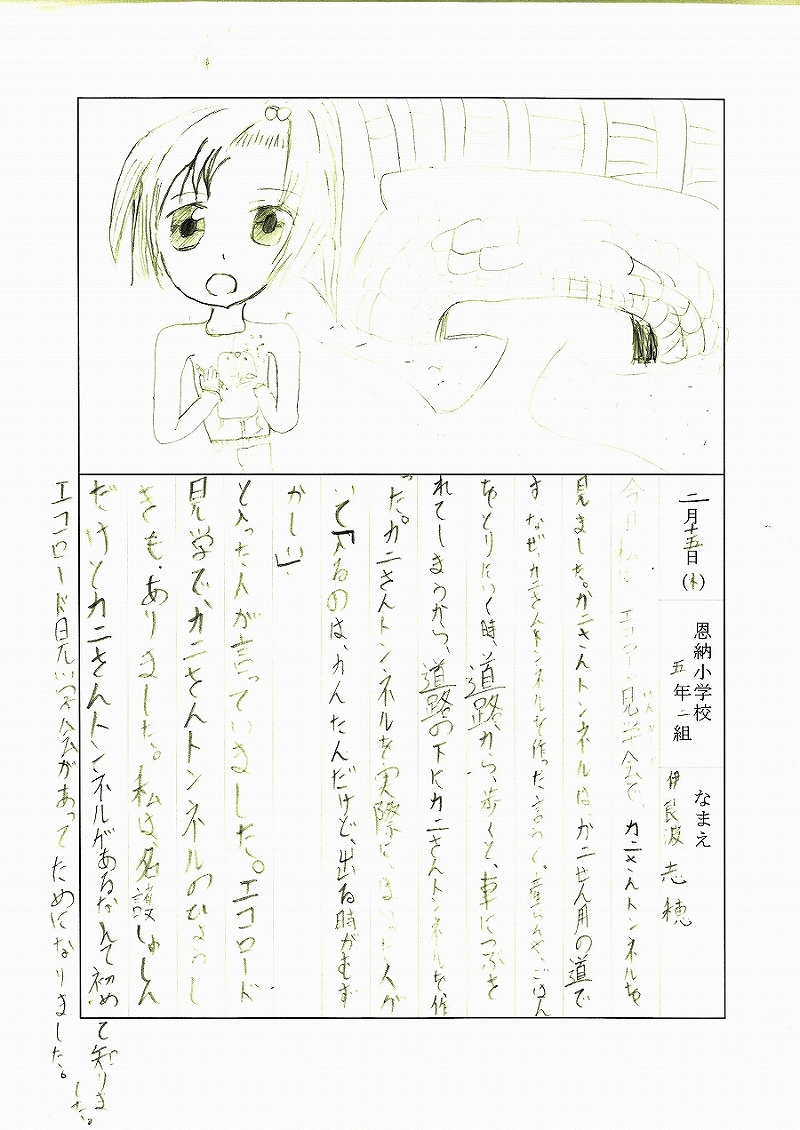 二月十五日(木)
恩納小学校
五年一組
なまえ
伊良波 志穂
今日私は、エコロード見学会で、カニさんトンネルを
見ました。カニさんトンネルは、カニせん用の道で
す なぜ、カニさんトンネルを作った言うと、産らんや、ごはん
をとりにいく時、道路から、歩くと、車につぶさ
れてしまうから、道路の下にカニさんトンネルを作
った。カニさんトンネルを実際に、はいった人が
いて「入るのは、かんたんだけど、出る時がむず
かしい」
と入った人が言っていました。エコロード
見学で、カニさんトンネルのひょうし
きも、ありました。私は、名護しゅしん
だけどカニさんトンネルがあるなんて初めて知りま
した。
エコロード見学会があってためになりました。